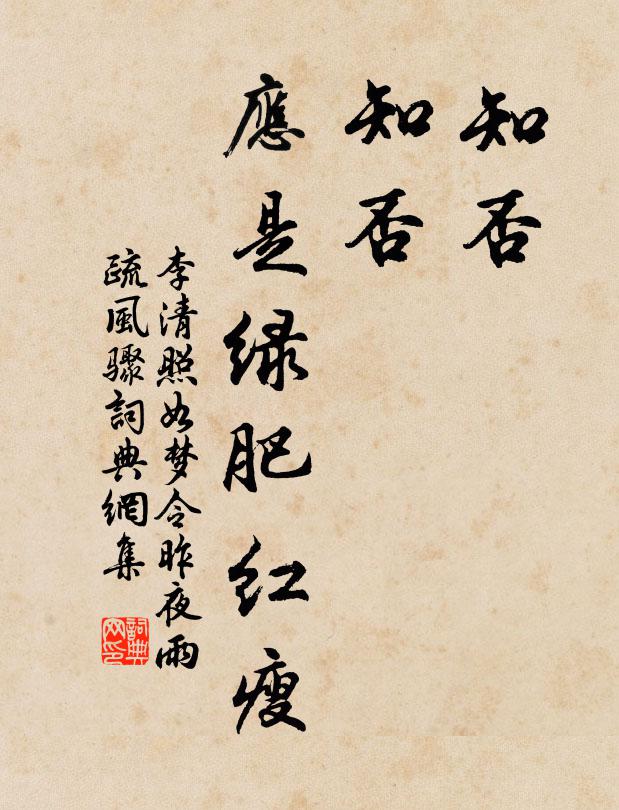 知否
知否
應是绿肥红瘦
李清照如梦令昨夜雨
疏風骤詞典網集
詞典网印